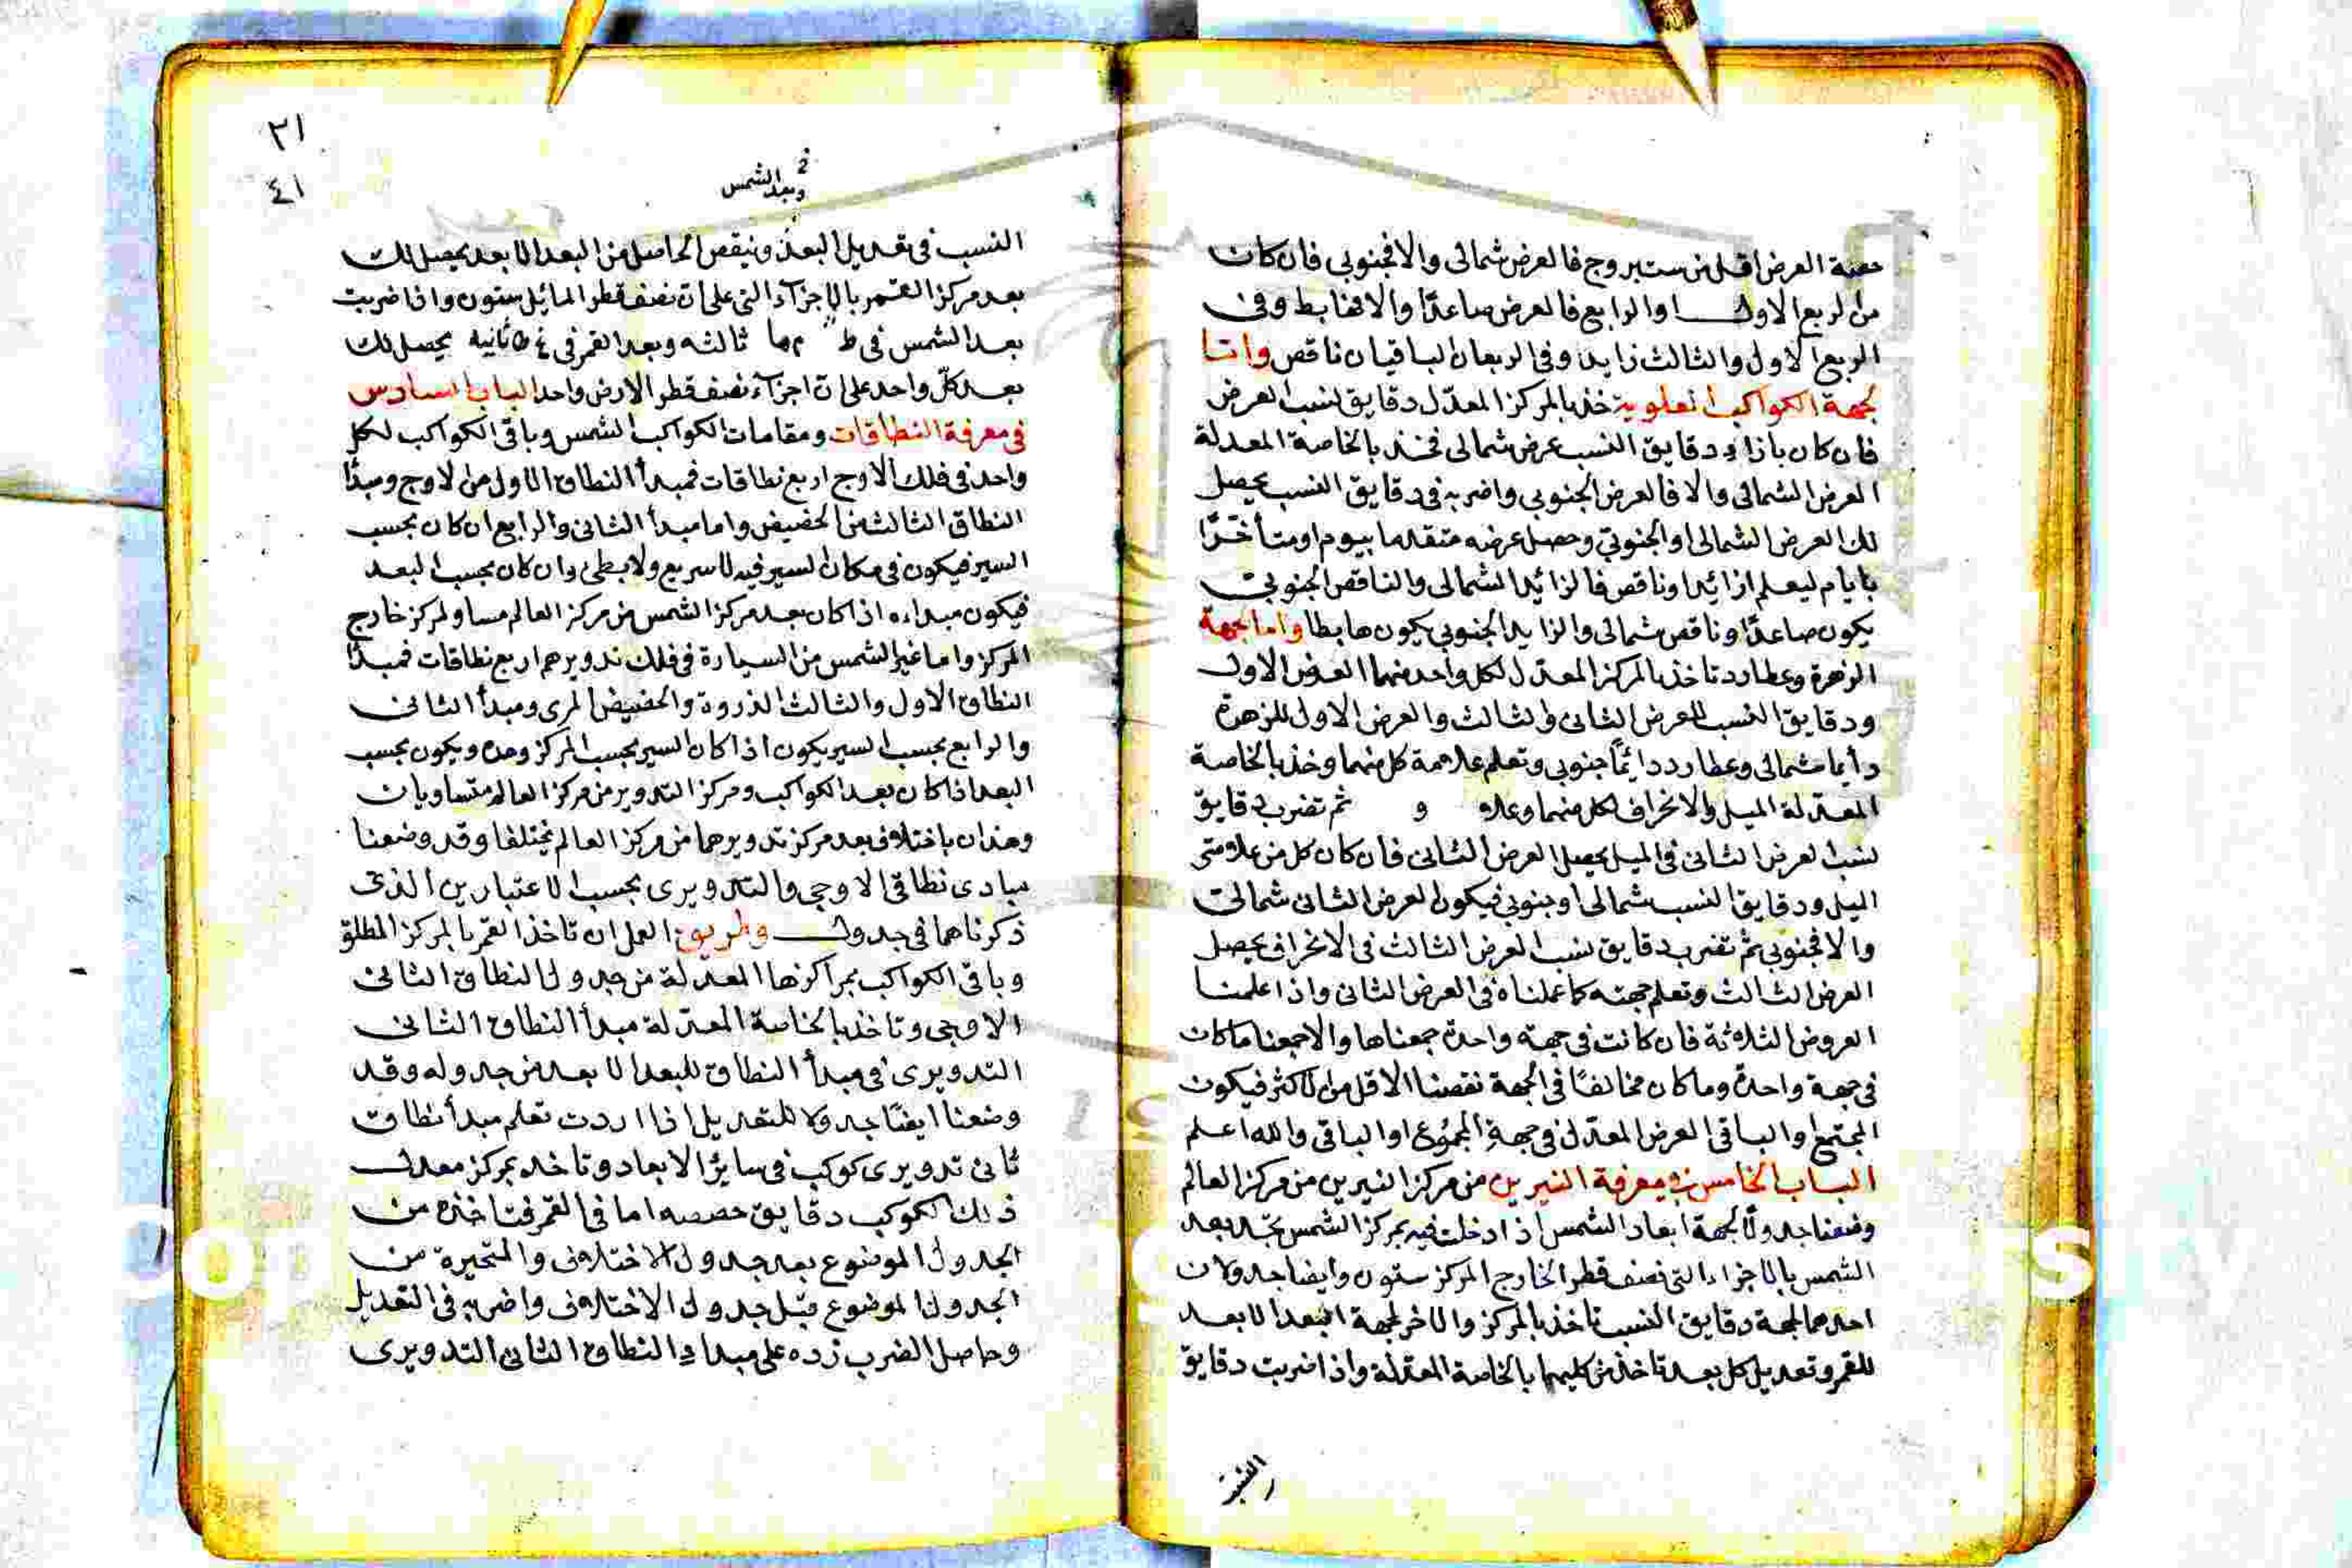 حصة العرض اقل من ست بروج فالعرض شمالى والا فجنوبى فان كان
من الربع الاول او الرابع فالعرض صاعدًا والا فهابط وفى
الربع الاول والثالث زايد وفى الربعان الباقيان ناقص واما
لجهة الكواكب العلوية خذ بالمركز المعدّل دقايق نسب العرض
فان كان بازاء دقايق النسب عرض شمالى فخذ بالخاصة المعدلة
العرض الشمالى والا فالعرض الجنوبى واضربه فى دقايق النسب يحصل
لك العرض الشمالى او الجنوبىّ وحصل عرضه متقدما بيوم او متأخّرًا
بايام ليعلم ازائد او ناقص فالزائد الشمالى والناقص الجنوبى
يكون صاعدًا وناقص شمالى والزايد الجنوبى يكون هابطا واما لجهة
الزهرة وعطارد تاخذ بالمركز المعدّل لكل واحد منهما العرض الاول
ودقايق النسب للعرض الثانى والثالث والعرض الاول للزهرة
دأيما شمالى وعطارد دائمًا جنوبى وتعلم علامة كل منهما وخذ بالخاصة
المعدّلة الميل والانحراف لكل منهما و و ثم تضرب دقايق
نسب العرض الثانى فى الميل يحصل العرض الثانى فان كان كل من علامتى
الميل ودقايق النسب شمالى او جنوبى فيكون العرض الثانى شمالى
والا فجنوبى ثم تضرب دقايق نسب العرض الثالث فى الانحراف يحصل
العرض الثالث وتعلم جهته كما عملناه فى العرض الثانى واذا علمنا
العروض الثلاثة فان كانت فى جهة واحدة جمعناها والا جمعنا ما كان
فى جهة واحدة وما كان مخالفًا فى الجهة نقصنا الاقل من الاكثر فيكون
المجتمع او الباقى العرض المعدّل فى جهة المجموع او الباقى والله اعلم
الباب الخامس فى معرفة النيرين من مركز النيرين من مركز العالم
وضعنا جدولًا لجهة ابعاد الشمس اذا دخلت فيه بمركز الشمس تجد بعد
الشمس بالاجزاء التى نصف قطر الخارج المركز ستون وايضا جدولان
احدهما لجهة دقايق النسب تاخذ بالمركز والاخر لجهة البعد الابعد
للقمر وتعديل كل بعد تاخذ من كليهما بالخاصة المعدّلة واذا ضربت دقايق
النسب
٢١
٤١
وبعد الشمس
النسب فى تعديل البعد ونيقص الحاصل من البعد الابعد يحصل لك
بعد مركز القمر بالاجزآء التى على ان نصف قطر المائل ستون واذا ضربت
بعد الشمس فى ط ثالثه وبعد القمر فى ثانيه يحصل لك
بعد كلّ واحد على ان اجزآء نصف قطر الارض واحد الباب السادس
فى معرفة النطاقات ومقامات الكواكب الشمس وباقى الكواكب لكل
واحد فى فلك الاوج اربع نطاقات فمبدأ النطاق الاول من الاوج ومبدأ
النطاق الثالث من الحضيض واما مبدأ الثانى والرابع ان كان بحسب
السير فيكون فى مكان السير فيه لا سريع ولا بطئ وان كان بحسب البعد
فيكون مبداءه اذا كان بعد مركز الشمس من مركز العالم مساو لمركز خارج
المركز واما غير الشمس من السيارة فى فلك تدويرهم اربع نطاقات فمبدأ
النطاق الاول والثالث الذروة والحضيض المرى ومبدأ الثانى
والرابع بحسب السير يكون اذا كان السير بحسب المركز وحده ويكون بحسب
البعد اذا كان بعد الكواكب ومركز التدوير من مركز العالم متساويان
وهذان باختلاف بعد مركز تدويرهما من مركز العالم يختلفا وقد وضعنا
مبادى نطاقى الاوجى والتدويرى بحسب الاعتبارين الذى
ذكرناهما فى جدول وطريق العمل ان تاخذ القمر بالمركز المطلق
وباقى الكواكب بمراكزها المعدلة من جدول النطاق الثانى
الاوجى وتاخذ بالخاصة المعدّلة مبدأ النطاق الثانى
التدويرى فى مبدأ النطاق للبعد الابعد من جدوله وقد
وضعنا ايضًا جدولا للتعديل اذا اردت تعلم مبدأ نطاق
ثانى تدويرى كوكب فى سائر الابعاد وتاخد بمركز معدل
ذلك الكوكب دقايق حصصه اما فى القمر فتاخذه من
الجدول الموضوع بعد جدول الاختلاف والمتحيرة من
الجدول الموضوع قبل جدول الاختلاف واضربه فى التعديل
وحاصل الضرب زده على مبداء النطاق الثانى التدويرى